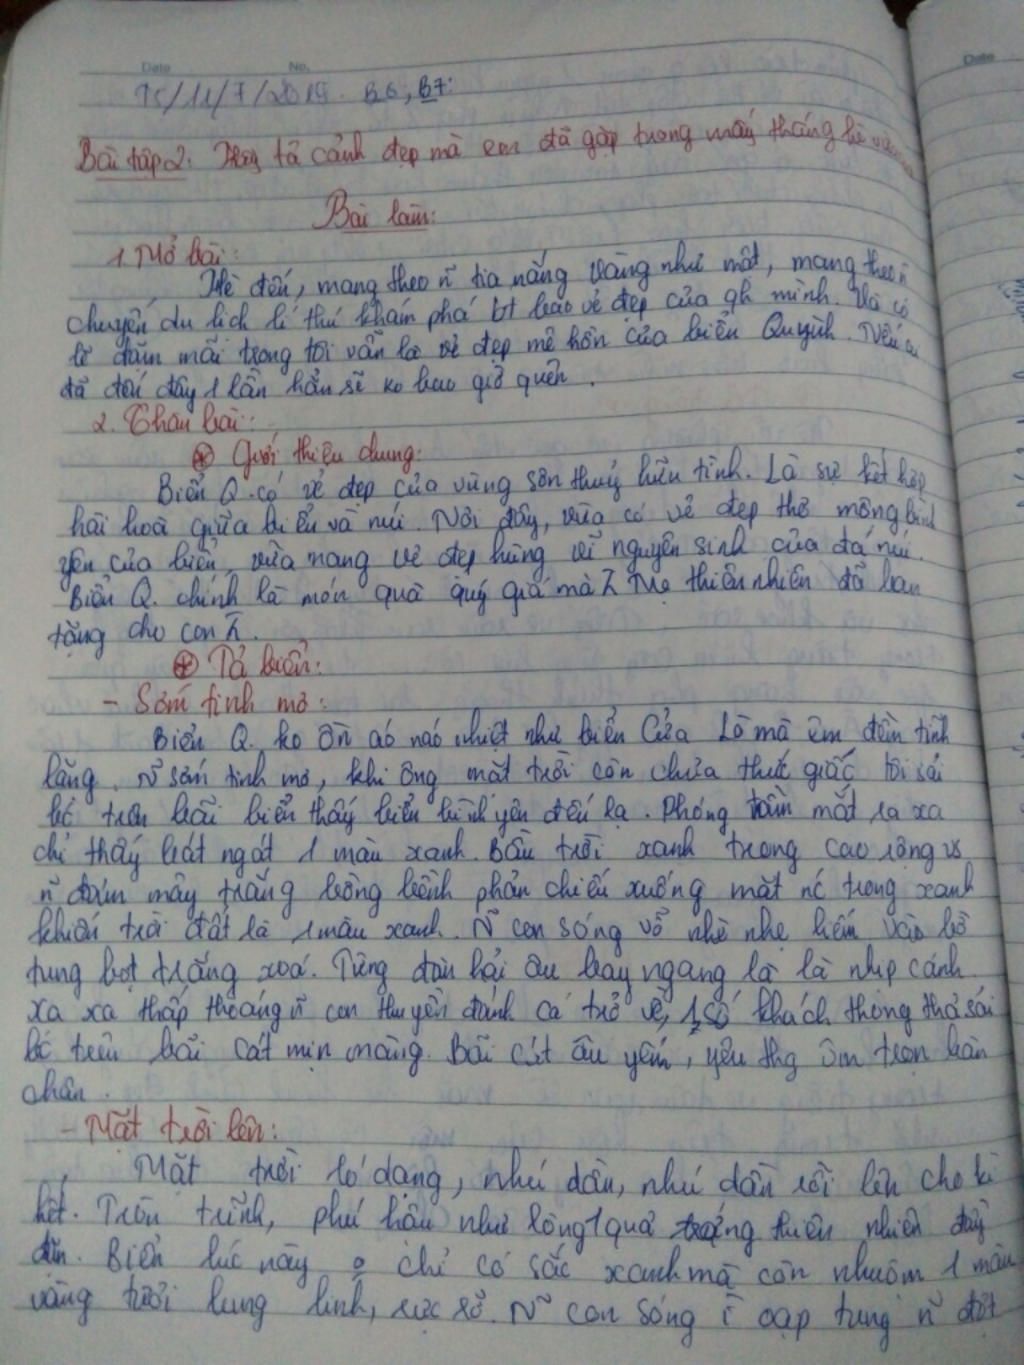 Date No.
/11/7/2019. B6, B7:
Bài tập 2: tả cảnh đẹp mà em đã gặp trong mấy tháng hè
Bài làm:
1. Mở bài:
Hè đến, mang theo ~ tia nắng vàng như mật, mang theo ~
chuyến du lịch lí thú khám phá bt bao vẻ đẹp của qh mình. Và có
lẽ đậm mãi trong tôi vẫn là vẻ đẹp mê hồn của biển Quỳnh. Nếu ai
đã đến đây 1 lần hẳn sẽ ko bao giờ quên.
2. Thân bài:
⊛ Giới thiệu chung:
Biển Q. có vẻ đẹp của vùng sơn thuỷ hữu tình. Là sự kết hợp
hài hoà giữa biển và núi. Nơi đây, vừa có vẻ đẹp thơ mộng bình
yên của biển, vừa mang vẻ đẹp hùng vĩ nguyên sinh của đá núi.
Biển Q. chính là món quà quý giá mà Mẹ thiên nhiên đã ban
tặng cho con
⊛ Tả biển:
- Sớm tinh mơ:
Biển Q. ko ồn ào náo nhiệt như biển Cửa Lò mà êm đềm tĩnh
lặng. ~ sớm tinh mơ, khi ông mặt trời còn chưa thức giấc tôi sải
bc trên bãi biển thấy biển bình yên đến lạ. Phóng tầm mắt ra xa
chỉ thấy bát ngát 1 màu xanh. Bầu trời xanh trong cao rộng vs
~ đám mây trắng bồng bềnh phản chiếu xuống mặt nc trong xanh
khiến trời đất là 1 màu xanh. ~ con sóng vỗ nhè nhẹ liếm vào bờ
tung bọt trắng xoá. Từng đàn hải âu bay ngang là là nhịp cánh.
Xa xa thấp thoáng ~ con thuyền đánh cá trở về, 1 số khách thong thả sải
bc trên bãi cát mịn màng. Bãi cát âu yếm, yêu thg ôm trọn bàn
chân.
- Mặt trời lên:
Mặt trời ló dạng, nhú dần, nhú dần rồi lên cho kì
hết. Tròn trĩnh, phúc hậu như lòng 1 quả trứng thiên nhiên đầy
đặn. Biển lúc này o chỉ có sắc xanh mà còn nhuộm 1 màu
vàng tươi lung linh, rực rỡ. ~ con sóng ì oạp tung ~ đợt
Date